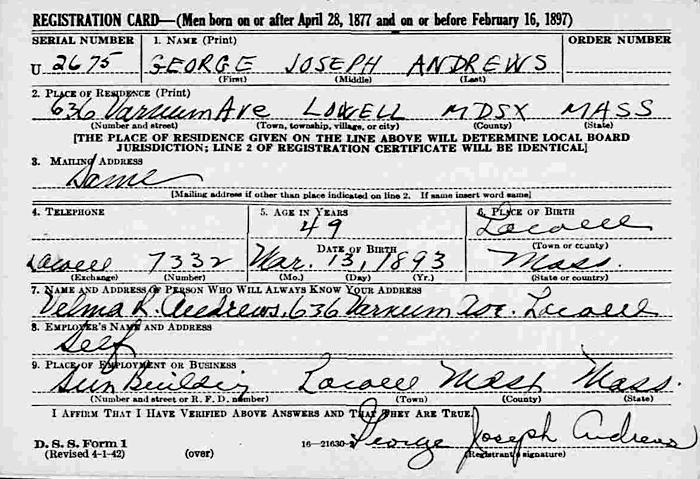 REGISTRATION CARD—(Men born on or after April 28, 1877 and on or before February 16, 1897)
SERIAL NUMBER 1. NAME (Print) ORDER NUMBER
U 2675 GEORGE JOSEPH ANDREWS
(First) (Middle) (Last)
2. PLACE OF RESIDENCE (Print)
636 Varnum Ave LOWELL MDSX MASS
(Number and street) (Town, township, village, or city) (County) (State)
[THE PLACE OF RESIDENCE GIVEN ON THE LINE ABOVE WILL DETERMINE LOCAL BOARD
JURISDICTION; LINE 2 OF REGISTRATION CERTIFICATE WILL BE IDENTICAL]
3. MAILING ADDRESS
Same
[Mailing address if other than place indicated on line 2. If same insert word same]
4. TELEPHONE 5. AGE IN YEARS 6. PLACE OF BIRTH
49 Lowell
DATE OF BIRTH (Town or county)
Lowell 7332 Mar. 13, 1893 Mass.
(Exchange) (Number) (Mo.) (Day) (Yr.) (State or country)
7. NAME AND ADDRESS OF PERSON WHO WILL ALWAYS KNOW YOUR ADDRESS
Velma R. Andrews, 636 Varnum Ave. Lowell
8. EMPLOYER'S NAME AND ADDRESS
Self
9. PLACE OF EMPLOYMENT OR BUSINESS
Sun Building Lowell Mdsx Mass.
(Number and street or R. F. D. number) (Town) (County) (State)
I AFFIRM THAT I HAVE VERIFIED ABOVE ANSWERS AND THAT THEY ARE TRUE.
George Joseph Andrews
D. S. S. Form 1 16—21630-2 (Registrant's signature)
(Revised 4-1-42) (over)